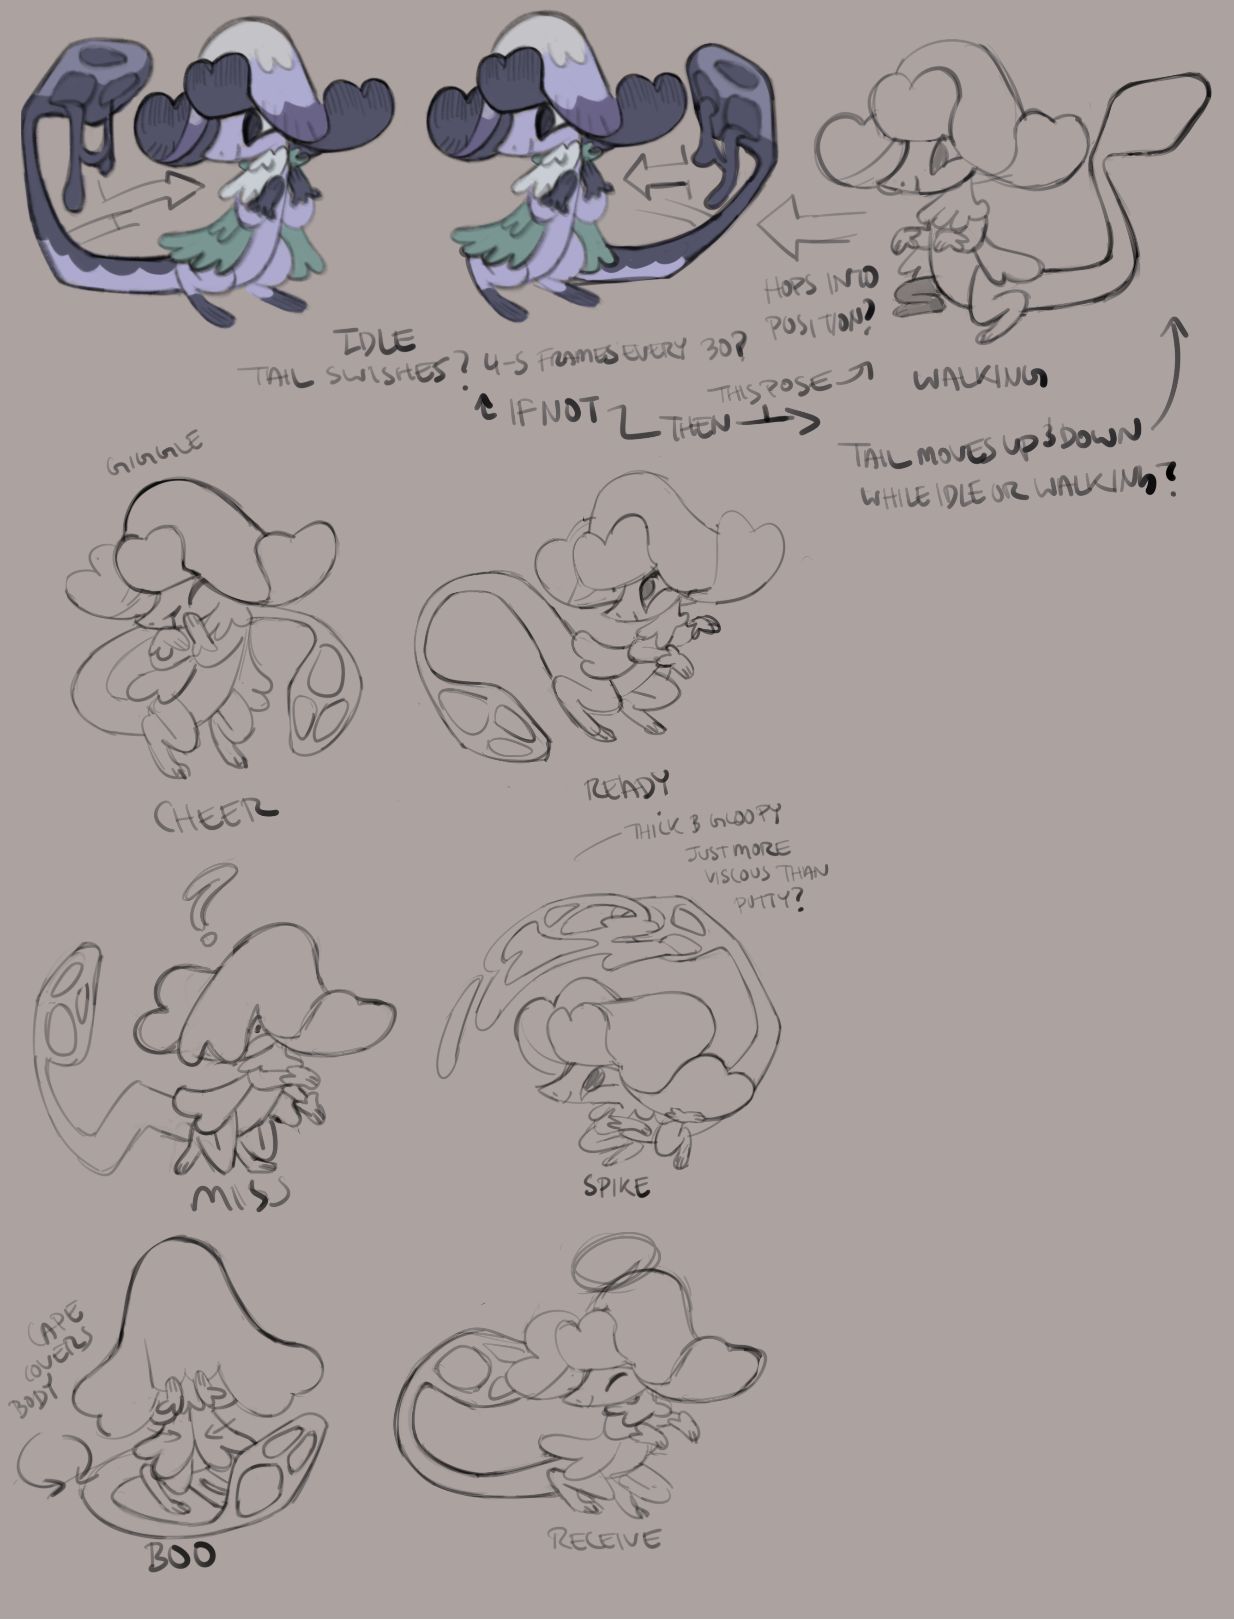 IDLE
TAIL SWISHES? 4-5 FRAMES EVERY 30?
IF NOT THEN
THIS POSE
HOPS INTO
POSITION?
WALKING
TAIL MOVES UP & DOWN
WHILE IDLE OR WALKING?
GIGGLE
CHEER
READY
THICK & GLOOPY
JUST MORE
VISCOUS THAN
PUTTY?
?
MISS
SPIKE
CAPE
COVERS
BODY
BOO
RECEIVE